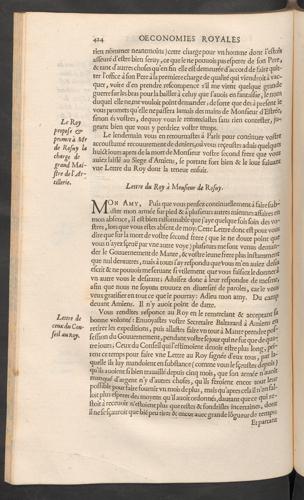 424 OECONOMIES ROYALES
rien nommer neantmoins) cette charge pour vn homme dont l'estois
asseuré d'estre bien seruy, ce que ie ne pouuois pas esperer de son Pere,
& tant d'autres choses qu'en fin elle est demeurée d'accord de faire quit-
ter l'office à son Pere à la premiere charge de qualité qui viendroit à vac-
quer, voire d'en prendre recompence s'il me vient quelque grande
guerre sur les bras pour la bailler à celuy que i'auois en fantaisie, le nom
duquel elle ne me vouloit point demander: de sorte que des à present ie
vous promets qu'elle ne passera iamais des mains de Monsieur d'Estrée,
sinon és vostres, dequoy vous le remerciastes sans rien contester, ju-
geant bien que vous y perdriez vostre temps.
Le Roy
propose &
promet à Mr
de Rosny la
charge de
grand Mai-
stre de l'Ar-
tillerie.
Le lendemain vous en retournastes à Paris pour continuer vostre
accoustumé recouurement de deniers, où vous receustes
huict iours apres de la mort de Monsieur vostre second frere que vous
auiez laissé au Siege d'Amiens, & portant fort bien & le iour suiuant
vne Lettre du Roy dont la teneur ensuit.
Lettre du Roy à Monsieur de Rosny.
MON AMY, Puis que vous perdez continuellement à faire sub-
sister mon armée sur pied & à plusieurs autres miennes affaires en
mon absence, il est bien raisonnable que i'aye quelque soin des vo-
stres, lors que vous estes absent de moy. Cette Lettre donc est pour vous
dire que sur la mort de vostre second frere (que ie ne doute point que
vous n'ayez sçeuë par vne autre voye) plusieurs me sont venus deman-
der le Gouuernement de Mante, & vostre ieune frere plus instamment
que nul des autres, mais à tous i'ay respondu que vous m'en auiez desia
escrit & ne pouuois me seruant si vtilement que vous faissiez le donner à
vn autre vous le desirant: Aduisez donc à leur respondre de mesme,
afin que nous ne soyons trouuez en diuersité de paroles, car ie veux
vous gratifier en tout ce que ie pourray: Adieu mon amy. Du camp
deuant Amiens. Il n'y auoit point de datte.
Lettre de
ceux du Con-
seil au Roy.
Vous rendites response au Roy en le remerciant & acceptant sa
bonne volonté: Enuoyastes vostre Secretaire Balterard à Amiens en
retirer les expeditions, puis allastes faire vn tour à Mante prendre pos-
session du Gouuernement, pendant vostre sejour qui ne fut que de qua-
tre iours; Ceux du Conseil qui s'estimoient desia estre plus long, pri-
rent ce temps pour faire vne Lettre au Roy signée d'eux tous, par la-
quelle ils luy mandoient en substance (comme vous le sçeustes depuis)
qu'ils auoient si bien trauaillé depuis cinq mois, que son armée n'auoit
manqué d'argent n'y d'autres choses, qu'ils feroient encor tout leur
possible pour faire fournir vn mois de plus, mais qu'apres cela il n'en fal-
lust plus esperer des moyens qu'il auoit ordonnés, dautant que ce qui re-
stoit à receuoir n'estoient plus que restes & fondrilles incertaines, dont
il ne se sçauroit que bié peu tirer & encor auec grande lôgueur de temps:
Et partant